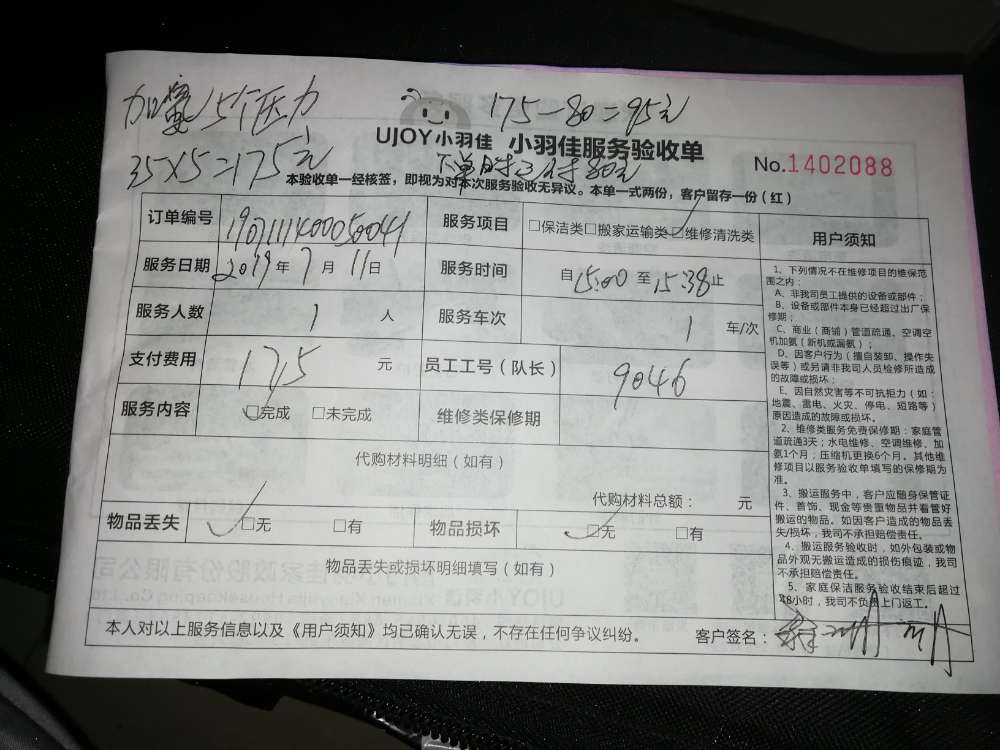 加氨5个压力
175-80=95元
UJOY小羽佳 小羽佳服务验收单
35×5=175元
下单时已付80元
No.1402088
本验收单一经核签，即视为对本次服务验收无异议。本单一式两份，客户留存一份（红）
订单编号 190711140005041 服务项目 □保洁类□搬家运输类☑维修清洗类
服务日期 2019年7月11日 服务时间 自15:00至15:38止
服务人数 1人 服务车次 1车/次
支付费用 175元 员工工号（队长） 9046
服务内容 ☑完成 □未完成 维修类保修期
代购材料明细（如有）
代购材料总额： 元
物品丢失 ☑无 □有 物品损坏 ☑无 □有
物品丢失或损坏明细填写（如有）
本人对以上服务信息以及《用户须知》均已确认无误，不存在任何争议纠纷。 客户签名：
用户须知
1、下列情况不在维修项目的维保范
围之内：
A、非我司员工提供的设备或部件；
B、设备或部件本身已经超过出厂保
修期；
C、商业（商铺）管道疏通、空调空
机加氨（新机或漏氨）；
D、因客户行为（擅自装卸、操作失
误等）或另请非我司人员检修所造成
的故障或损坏；
E、因自然灾害等不可抗拒力（如：
地震、雷电、火灾、停电、短路等）
原因造成的故障或损坏。
2、维修类服务免费保修期：家庭管
道疏通3天；水电维修、空调维修、加
氨1个月；压缩机更换6个月。其他维
修项目以服务验收单填写的保修期为
准。
3、搬运服务中，客户应随身保管证
件、首饰、现金等贵重物品并看管好
搬运的物品。如因客户造成的物品丢
失/损坏，我司不承担赔偿责任。
4、搬运服务验收时，如外包装或物
品外观无搬运造成的损伤痕迹，我司
不承担赔偿责任。
5、家庭保洁服务验收结束后超过
48小时，我司不负责上门返工。